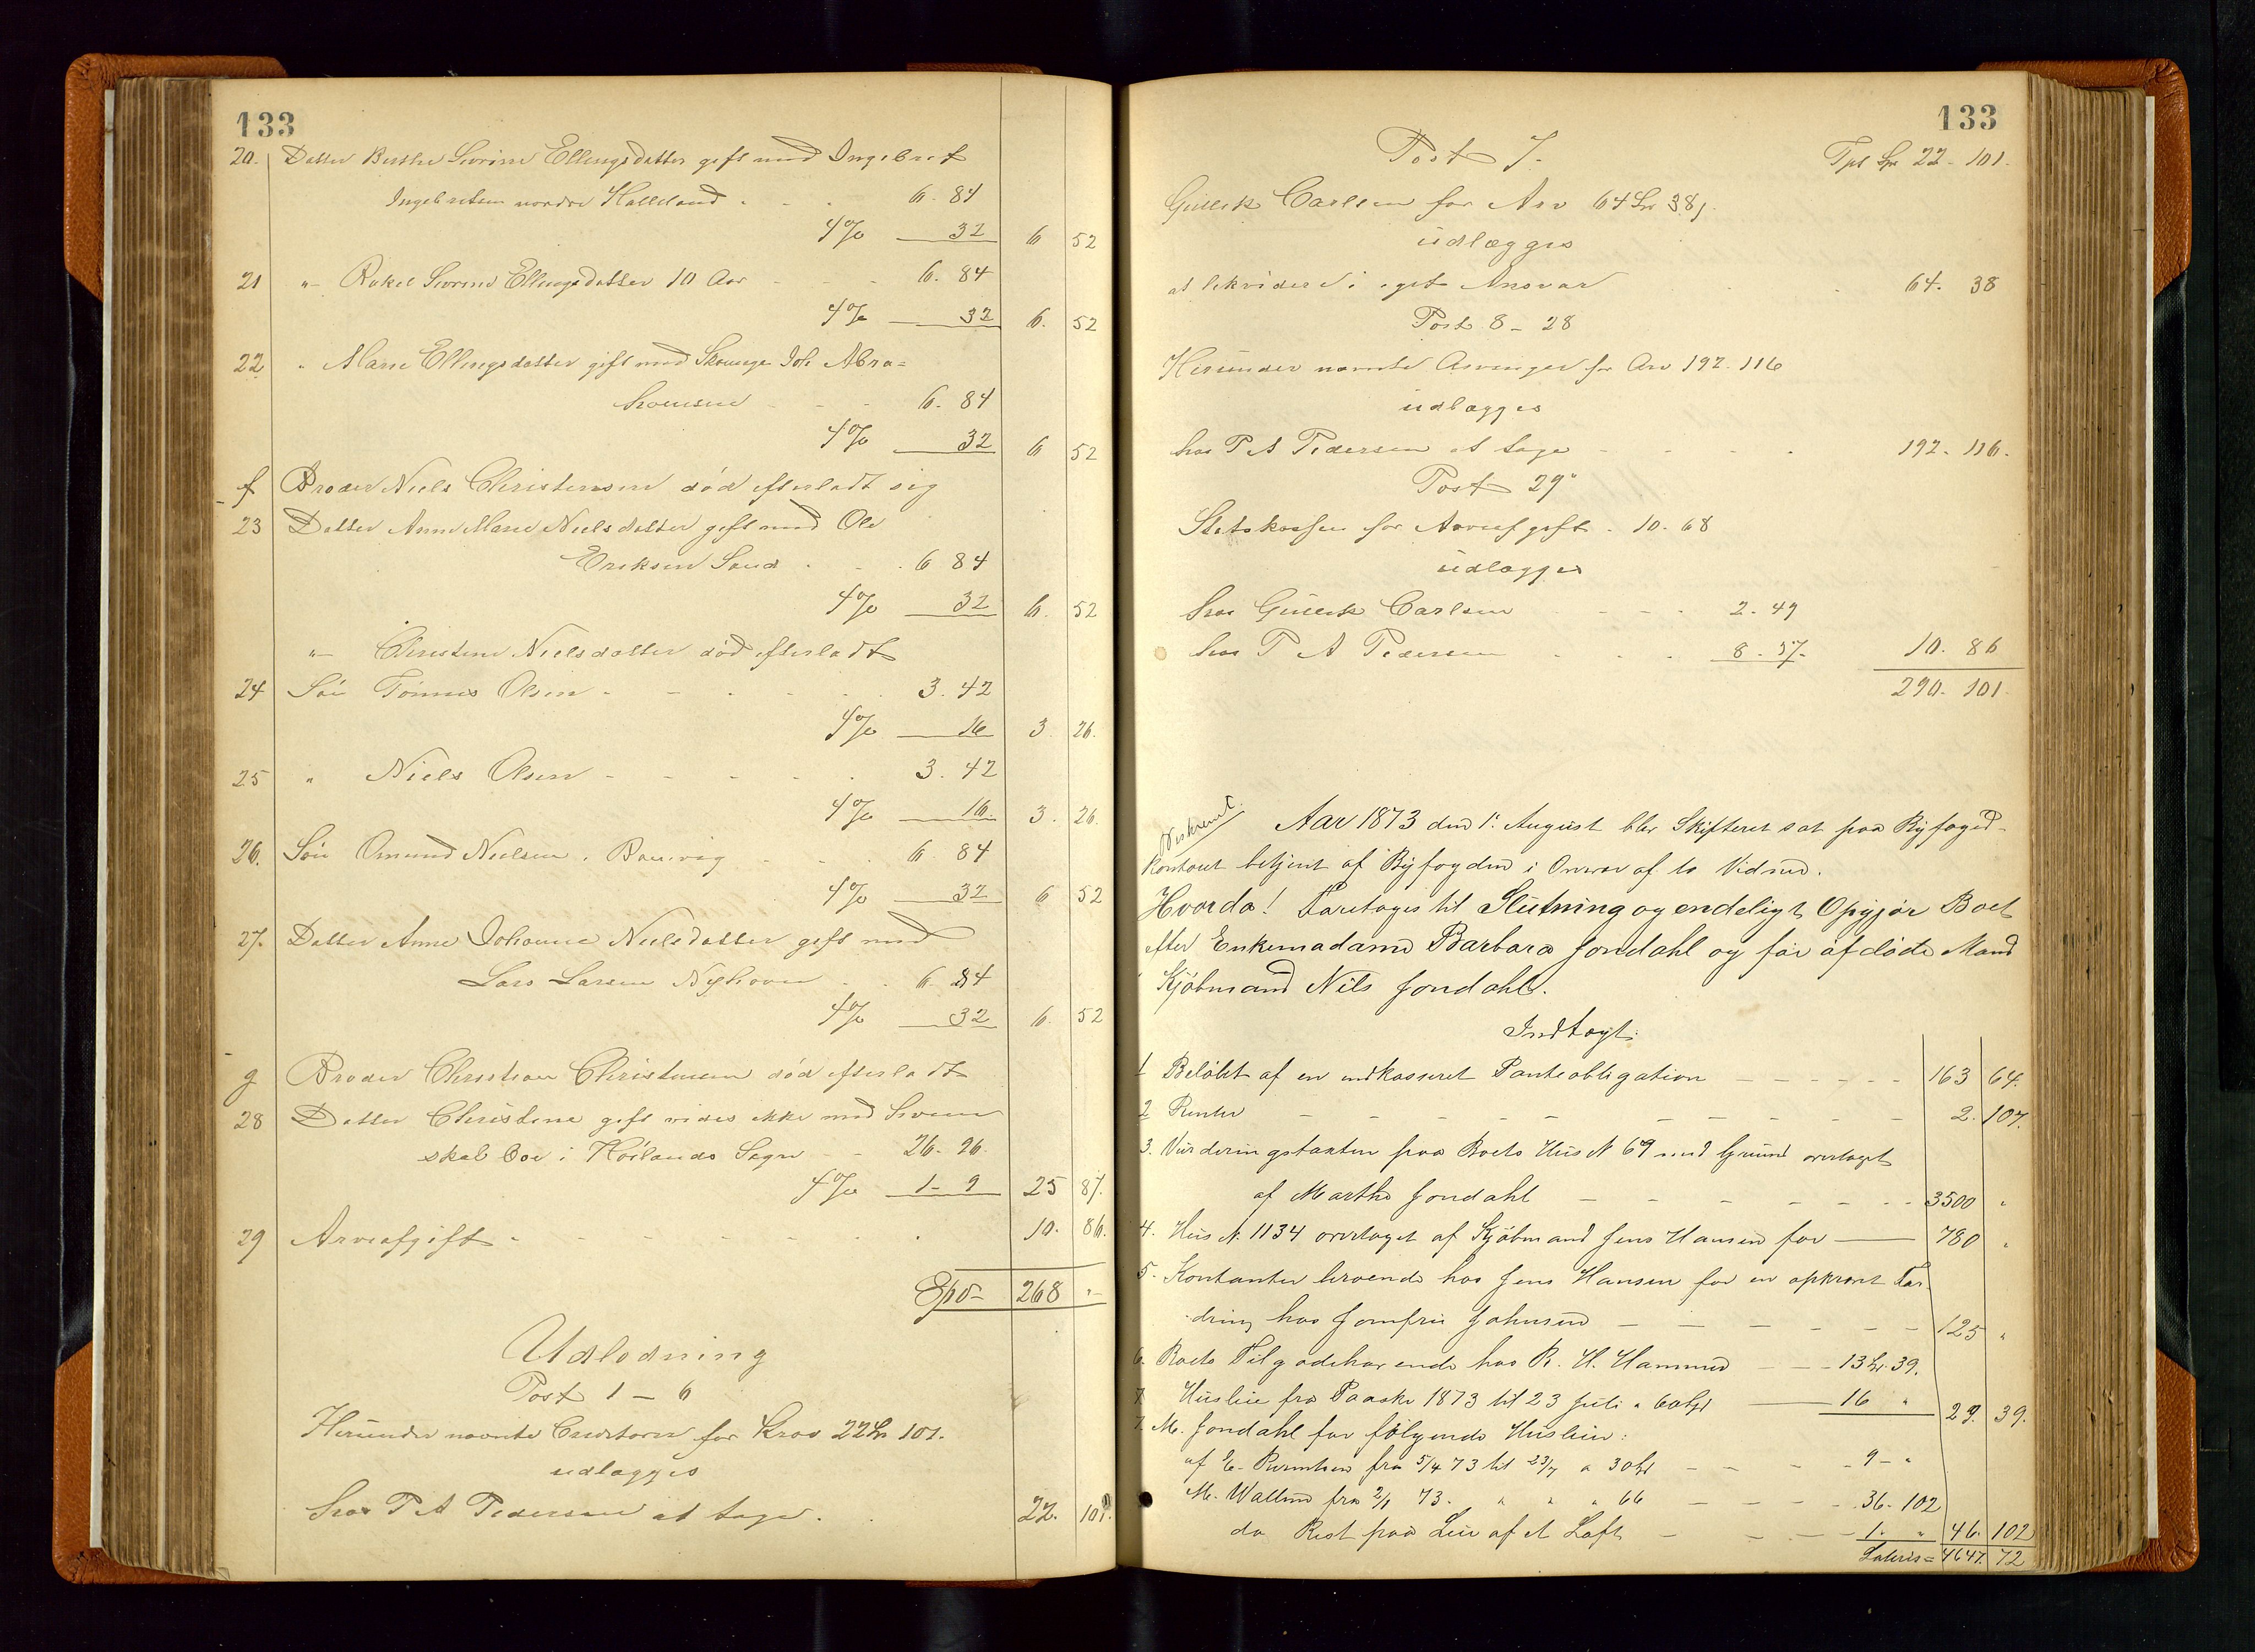 133
20. Datter Berthe Sevrine Ellingsdatter gift med Ingebret
Ingebretsen nordre Halleland - - - 6. 84
4% 32 6 52
21 " - Rakel Sevrine Ellingsdatter 10 Aar - - - 6. 84
4% 32 6. 52
22 " Marie Ellingsdatter gift med Joh Abra=
hamsen - - - 6. 84
4% 32 6 52
f Broder Niels Christensen død efterladt sig
23 Datter Anne Marie Nielsdatter gift med Ole
Eriksen Sand - - . 6 84
4% 32 6. 52
" - Christine Nielsdatter død efterladt
24 Søn Tønnes Olsen - - - - - 3. 42
4% 16 3. 26.
25 " Niels Olsen - - - - . 3. 42
4% 16. 3. 26.
26. Søn Omund Nielsen, - - . 6. 84
4% 32 6 52
27. Datter Anne Johanne Nielsdatter gift med
Lars Larsen - . 6. 84
4% 32 6. 52
g Broder Christian Christensen død efterladt
28 Datter Christine gift vides ikke med hvem
skal boe i Høilands Sogn - - 26. 26.
4% 1 - 9 25 87.
29 Arveafgift - - - - - - . 10. 86.
Spd 268 "
Udlodning
Post 1 - 6
Herunder nævnte Creditorer for Krav 22 101.
udlægges
hos P A Pedersen at tage . . 22. 101.
133
Post 7. Tpt 22 - 101.
Gullik Carlsen for Arv 64 38,
udlægges
at likvidere i eget Ansvar - 64. 38
Post 8 - 28
Herunder nævnte Arvinger for Arv 192. 116
udlægges
hos P A Pedersen at tage - - - . 192. 116.
Post 29
Statskassen for Arveafgift . 10. 68
udlægges
hos Gullik Carlsen - - - - 2. 49
hos P A Pedersen - - - 8 - 37 10. 86
290. 101
Beskrevet.
Aar 1873 den 1. August blev Skifteret sat paa Byfoged-
kontoret betjent af Byfogden i Overvær af to Vidner.
Hvorda! Foretoges til Slutning og endeligt Opgjør Boet
efter Enkemadame Barbara Jondahl og før afdøde Mand
Kjøbmand Nils Jondahl.
Indtægt:
1 Beløbet af en indkasseret Panteobligation - - - - - - 163 64.
2 Renter - - - - - - - - - 2. 107.
3. Vurderingstaxten paa Boets Hus N 69 med Grund overtaget
af Marthe Jondahl - - - - - - - 3500 "
4. Hus N. 1134 overtaget af Kjøbmand Jens Hansen for - 780 "
5. Kontanter beroende hos Jens Hansen for en opkrævet For-
dring hos Jomfru Johnsen - - - - - - 125 "
6. Boets Tilgodehavende hos R. H. Hammer - - - 13 39.
7 Husleie fra Paaske 1873 til 23 Juli a 60 - 16 " 29. 39.
7. M. Jondahl for følgende Husleie:
af E. fra 5/4 73 til 23/7 a 30 - - - - 9 - "
M. fra 2/1 73. " " " 66 - - - - 36 - 102
do Rest paa Leie af et Loft - - - - 1. " 46. 102
Lateris = 4647. 72